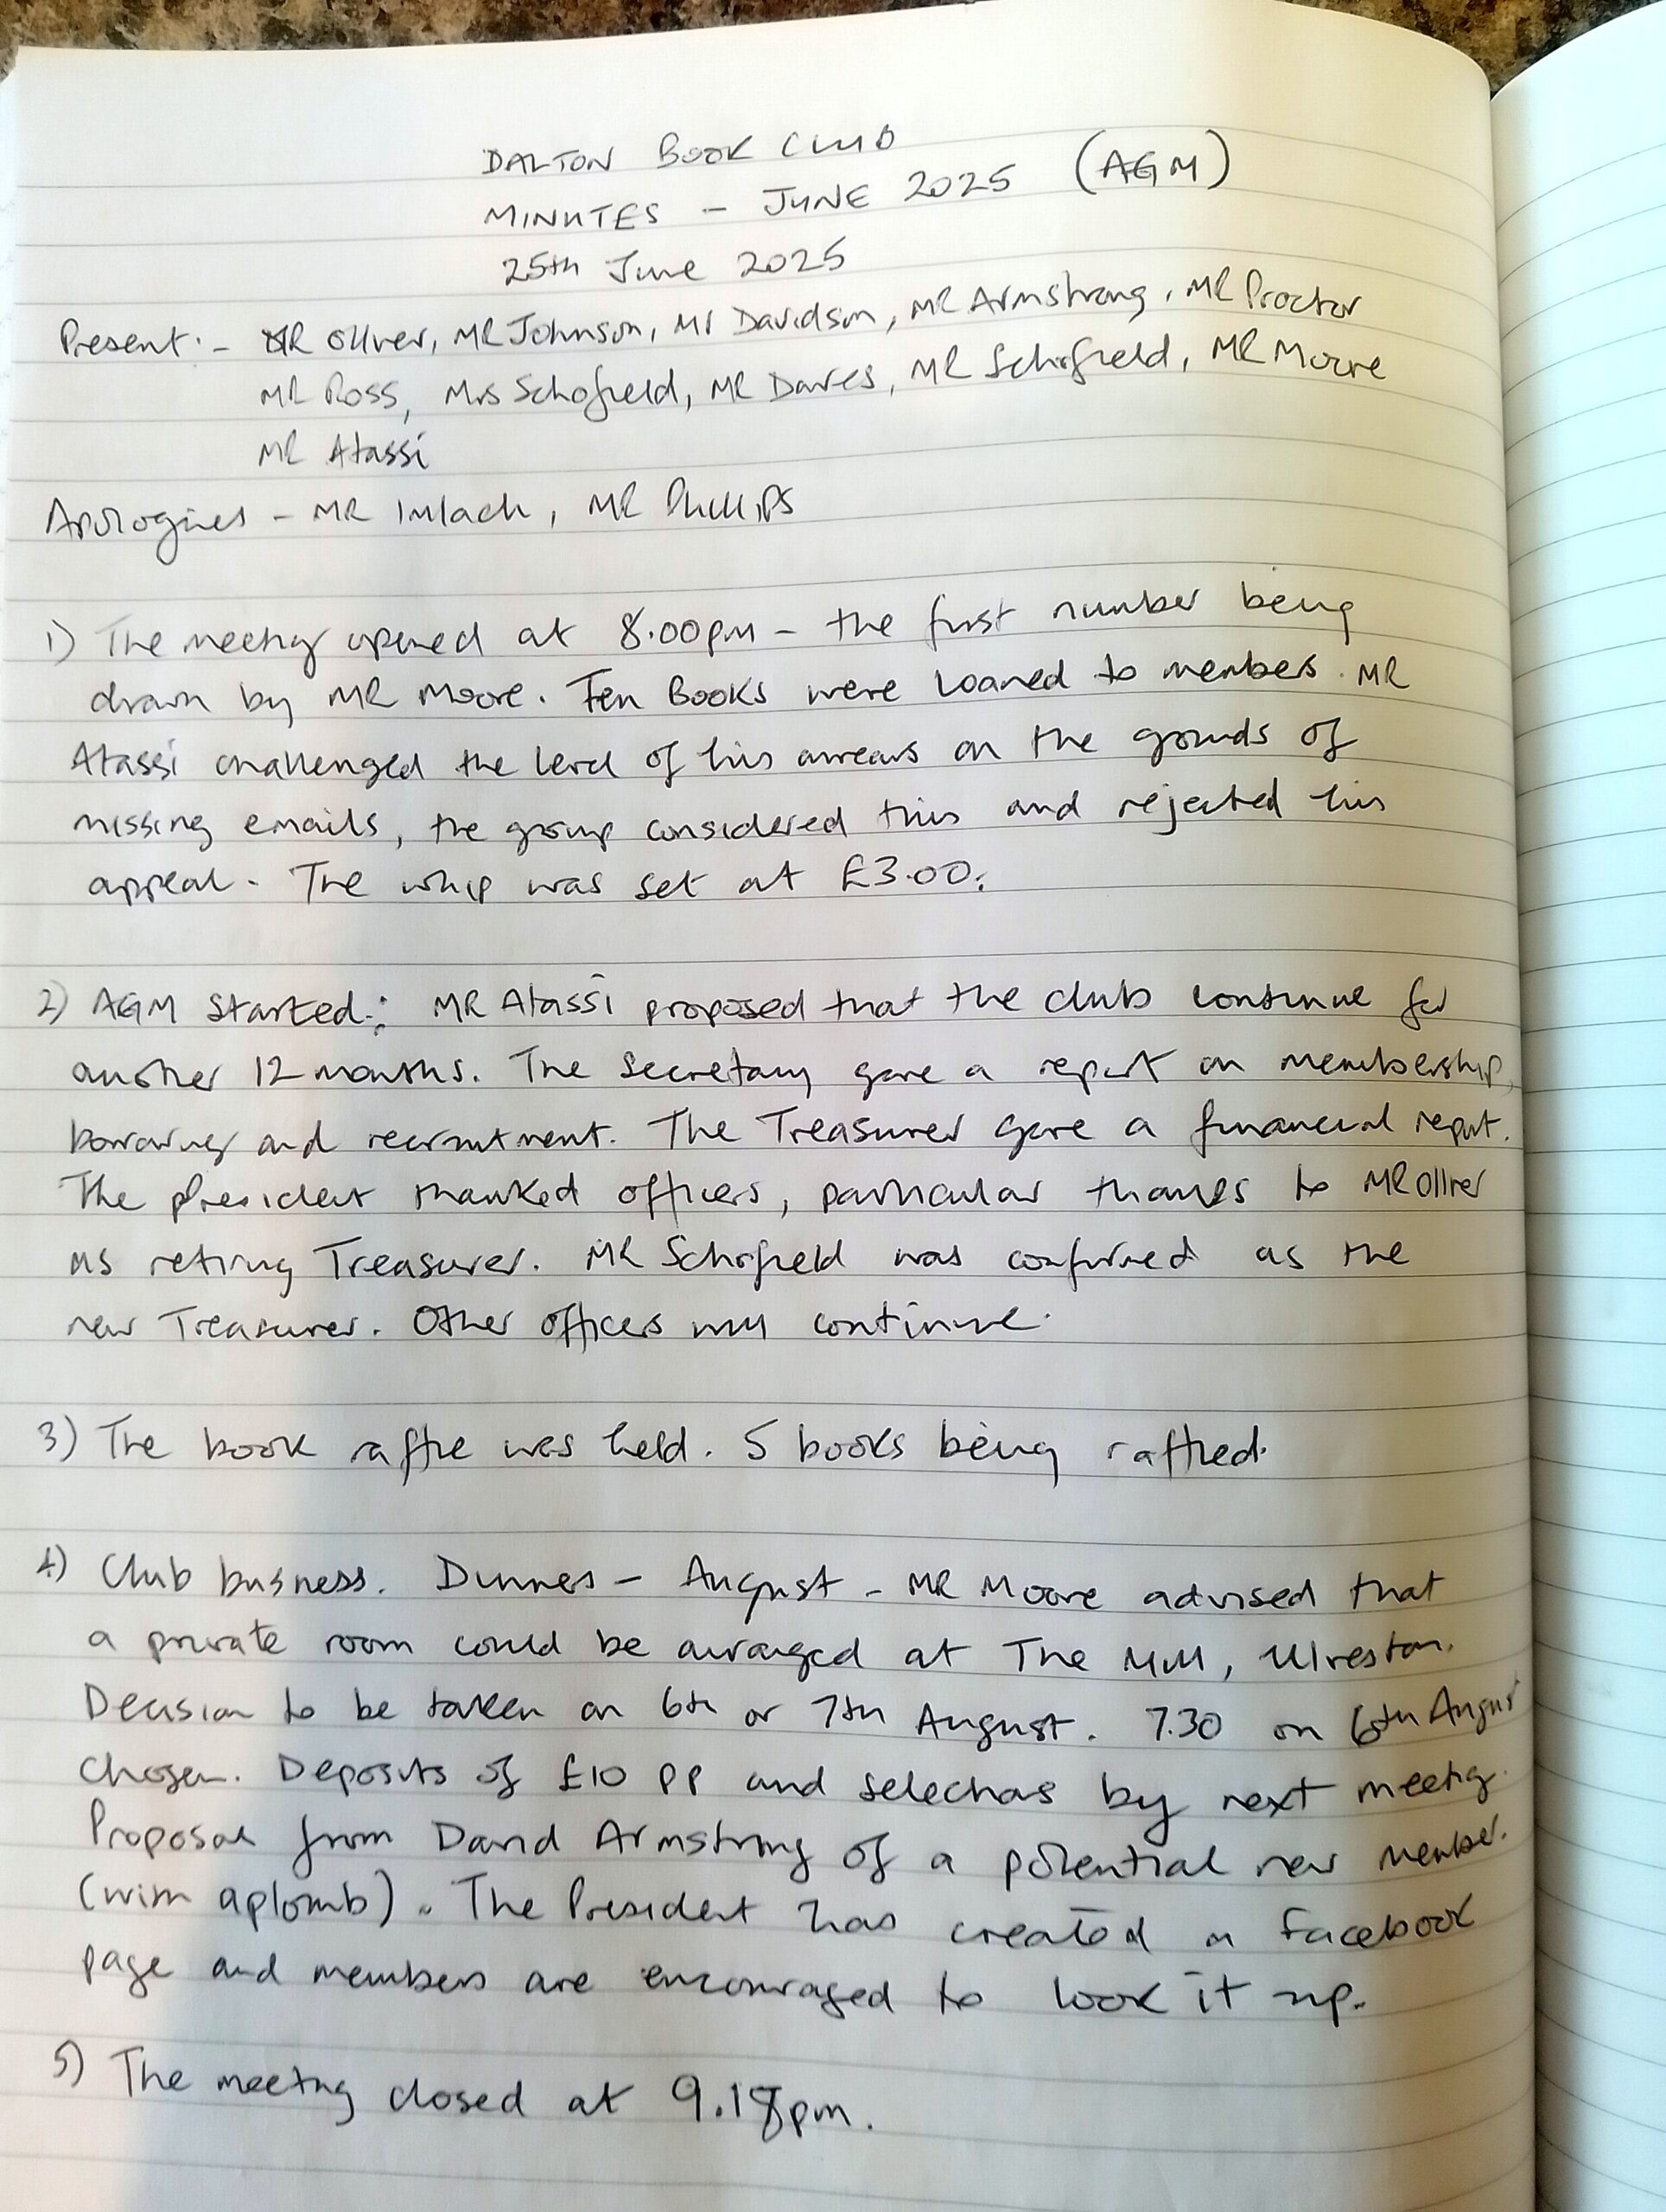 DALTON BOOK CLUB
MINUTES - JUNE 2025 (AGM)
25th June 2025
Present:- MR Oliver, MR Johnson, Mr Davidson, MR Armstrong, MR Proctor
MR Ross, Mrs Schofield, MR Davies, MR Schofield, MR Moore
MR Atassi
Apologies - MR Imlach, MR Phillips
1) The meeting opened at 8.00pm - the first number being
drawn by MR Moore. Ten Books were loaned to members. MR
Atassi challenged the level of his arrears on the grounds of
missing emails, the group considered this and rejected his
appeal. The whip was set at £3.00.
2) AGM Started: MR Atassi proposed that the club continue for
another 12 months. The Secretary gave a report on membership,
borrowing and recruitment. The Treasurer gave a financial report.
The President thanked officers, particular thanks to MR Oliver
as retiring Treasurer. MR Schofield was confirmed as the
new Treasurer. Other officers will continue.
3) The book raffle was held. 5 books being raffled.
4) Club business. Dinner - August - MR Moore advised that
a private room could be arranged at The Mill, Ulverston.
Decision to be taken on 6th or 7th August. 7.30 on 6th August
chosen. Deposits of £10 pp and selections by next meeting.
Proposal from David Armstrong of a potential new member.
(with aplomb). The President has created a Facebook
page and members are encouraged to look it up.
5) The meeting closed at 9.18pm.